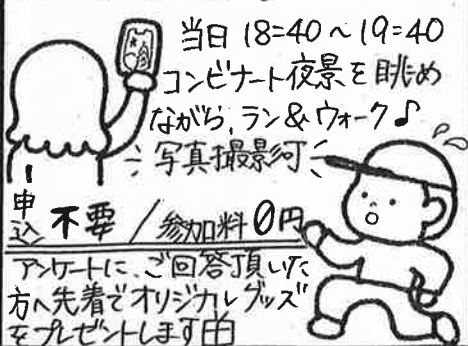 当日 18=40 ~ 19=40
コンビナート夜景を眺め
ながら、ラン&ウォーク♪
写真撮影可
申込 不要 / 参加料 0円
アンケートに、ご回答頂いた
方へ先着でオリジナルグッズ
をプレゼントします